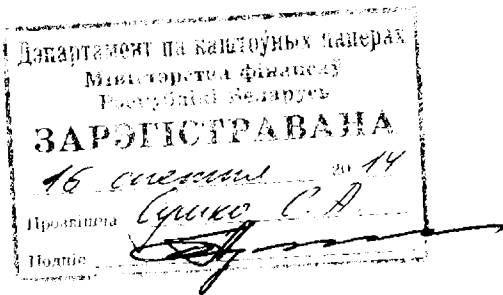 Дэпартамент па каштоўных паперах
Міністэрства фінансаў
Рэспублікі Беларусь
ЗАРЭГІСТРАВАНА
16 20 14
Прозвішча Сушко С.А
Подпіс